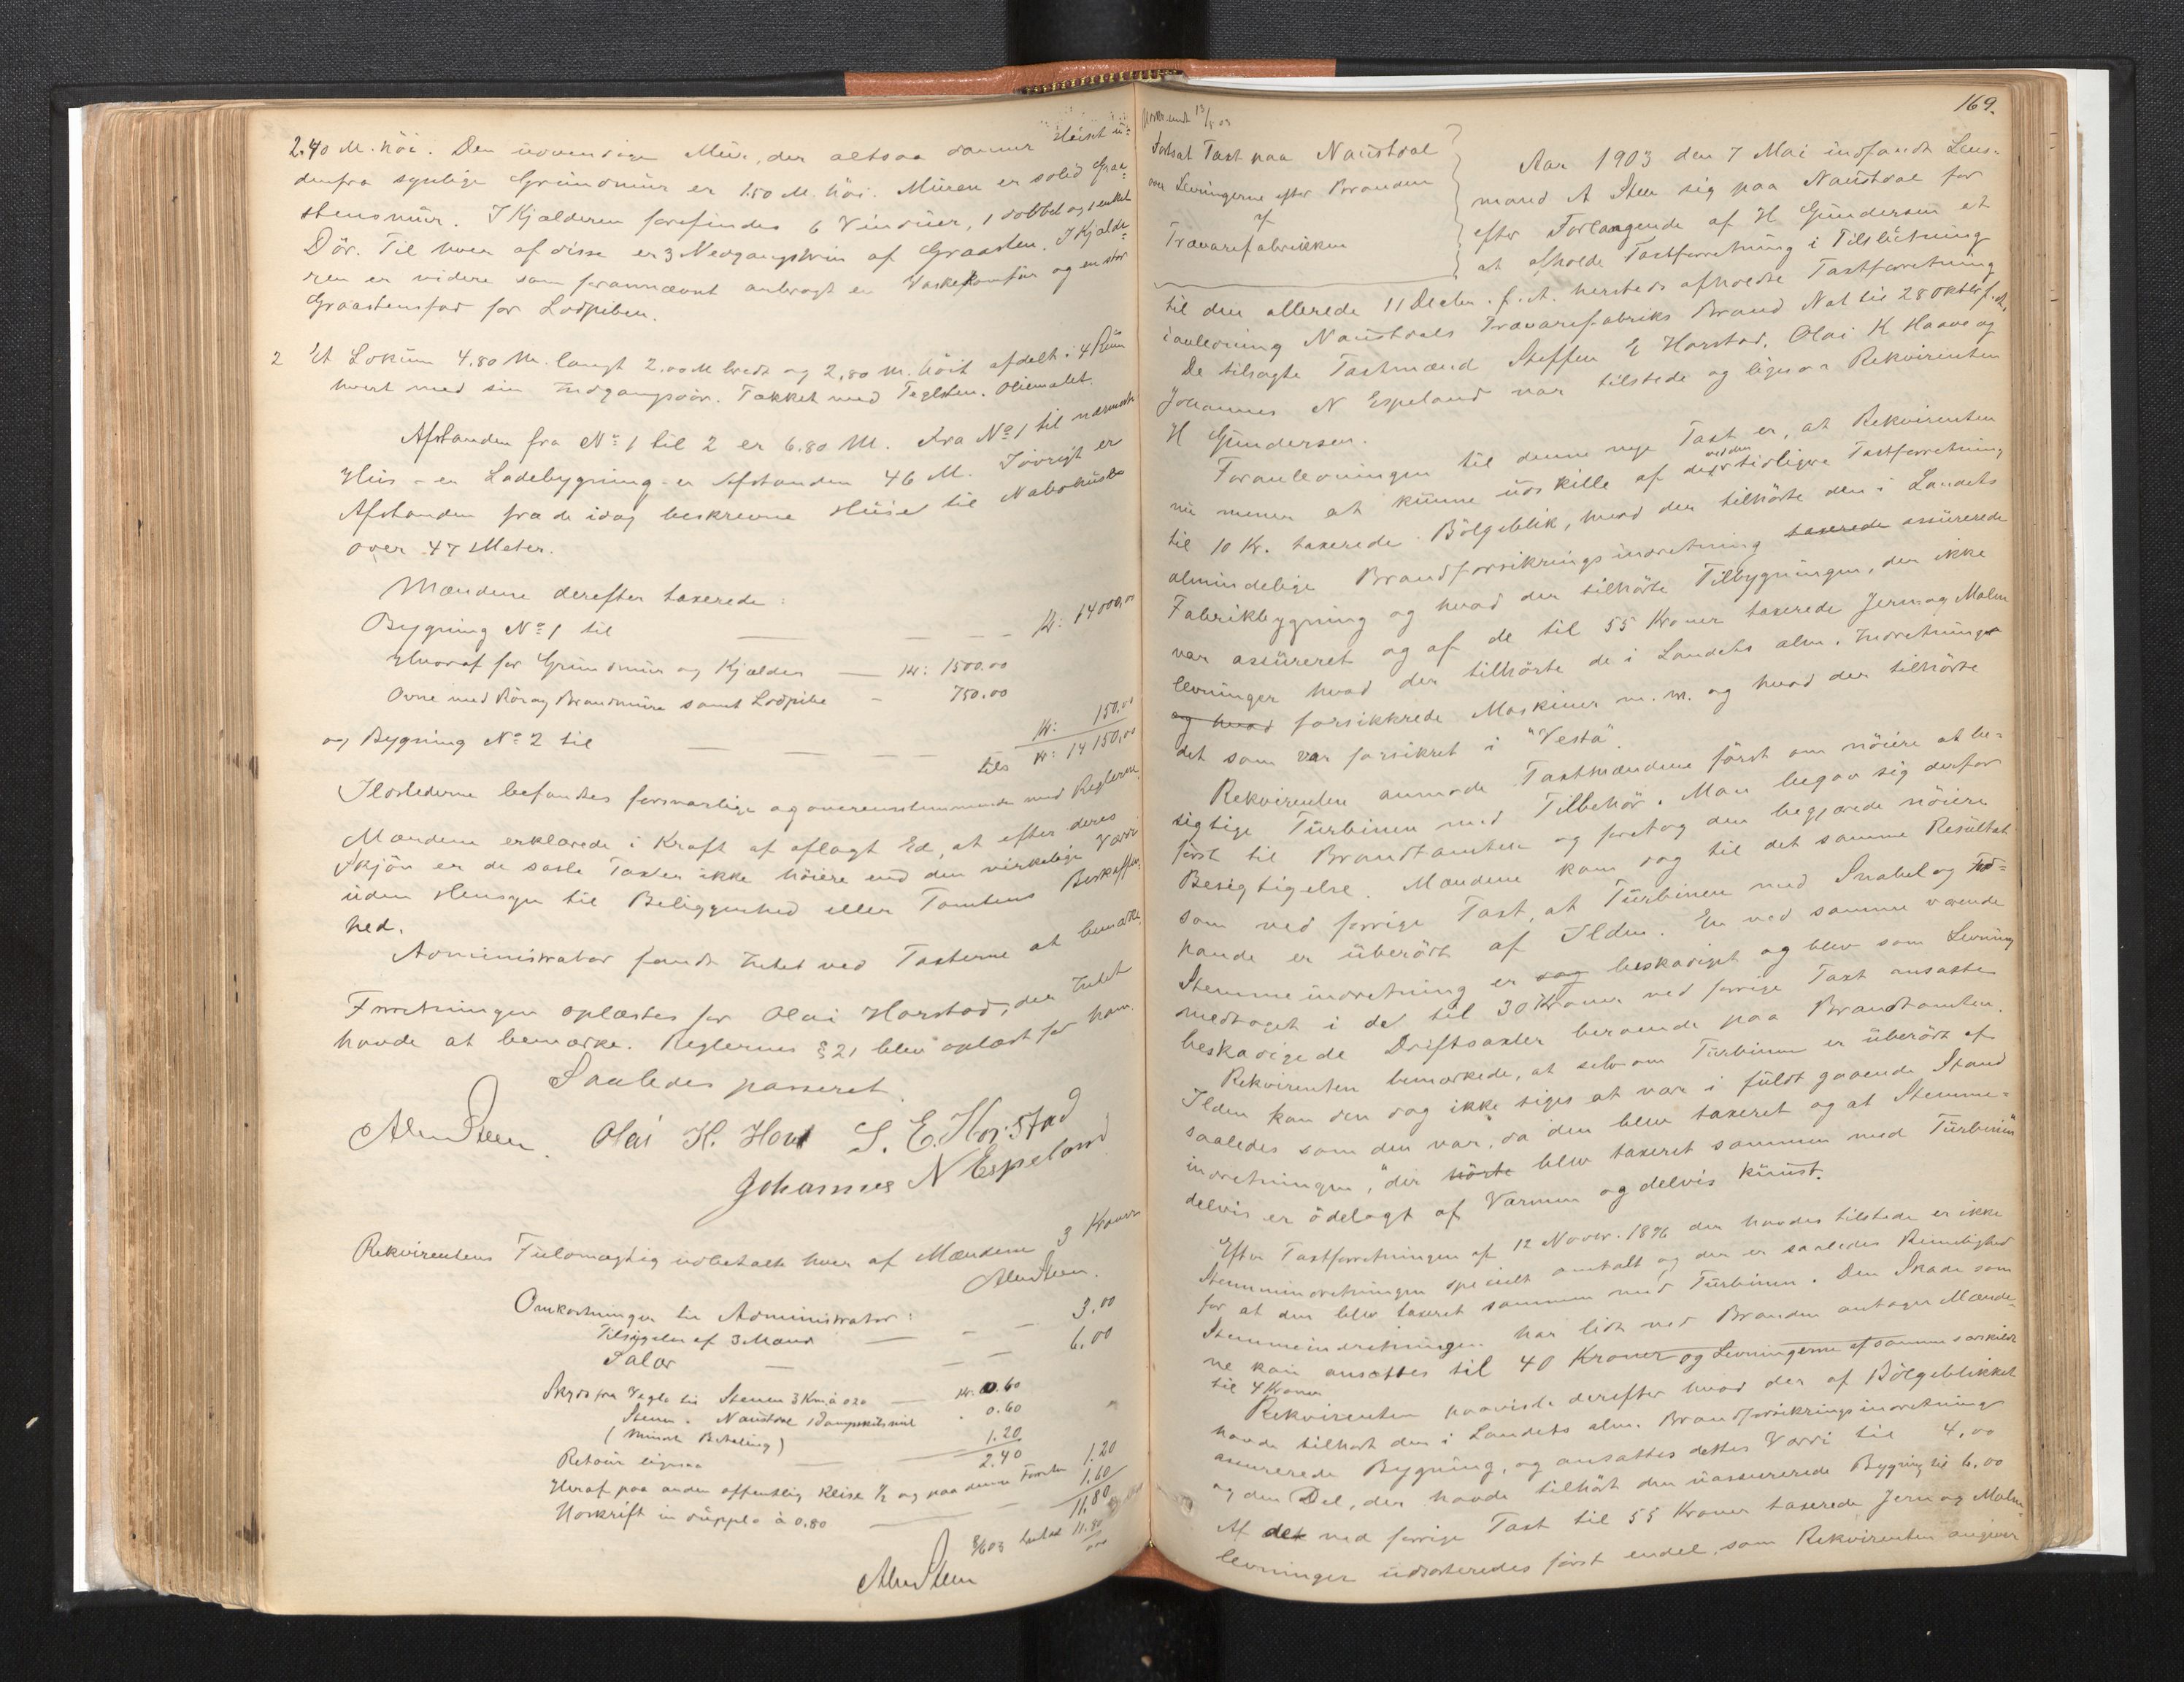 2.40 M. höi. Den udvendige Mur, der altsaa danner Huset u-
denfra synlige Grundmur er 1.50 M. höi. Muren er solid Graa-
stensmur. I Kjælderen forefindes 6 Vinduer, 1 dobbel og 1 enkel
Dör. Til hver af disse er 3 Nedgangstrin af Graasten. I Kjælde-
ren er videre som forannævnt anbragt en Vaskekomfur og en stor
Graastensfod for Lodpiben.
2 Et Lokum 4.80 M. langt 2.00 M bredt og 2,80 M. höit afdelt i 4 Rum
hvert med sin Indgangsdör. Tækket med Teglsten. Oliemalet.
Afstanden fra No 1 til 2 er 6.80 M. Fra No 1 til nærmeste
Hus - en Ladebygning - er Afstanden 46 M. Iövrigt er
Afstanden fra de idag beskrevne Huse til Nabohuse
over 47 Meter.
Mændene derefter taxerede:
Bygning No 1 til Kr: 14000,00
Hvoraf for Grundmur og Kjælder Kr: 1500.00
Ovne med Rör og Brandmure samt Lodpibe 750.00
og Bygning No 2 til Kr: 150.00
tils Kr: 14150,00
Ildstederne befandtes forsvarlige og overensstemmende med Reglerne.
Mændene erklærede i Kraft af aflagt Ed, at efter deres
Skjön er de satte Taxter ikke höiere end den virkelige Værdi
uden Hensyn til Beliggenhed eller Tomtens Beskaffen-
hed.
Administrator fandt Intet ved Taxterne at bemærke.
Forretningen oplæstes for Olai Horstad, der Intet
havde at bemærke. Reglernes § 21 blev oplæst for ham.
Saaledes passeret.
Alm Steen. Olai K. Hove S. E. Horstad
Johannes N Espeland
Rekvirentens Fuldmægtig udbetalte hver af Mændene 3 Kroner
Alm Steen.
Omkostninger til Administrator:
Tilsigelse af 3 Mænd 3.00
Salær 6.00
Skyds fra Vegle til Stenen 3 Km à 020 Kr. 0.60
Stenen - Naustdal 1 Dampskibsmil 0.60
(Minste Betaling) 1.20
Retour ligesaa 2.40
Heraf paa anden offentlig Reise ½ og paa denne Forretn 1.20
Udskrift in duplo à 0.80 1.60
11.80
8/6 03 betalt 11.80
Alm Steen
169.
13/5 03
Fortsat Taxt paa Naustdal
over Levningerne efter Branden
af
Trævarefabrikken
Aar 1903 den 7 Mai indfandt Lens-
mand A Steen sig paa Naustdal for
efter Forlangende af H Gundersen at
at afholde Taxtforretning i Tilslutning
til den allerede 11 Decbr. f. A. hersteds afholdte Taxtforretning
i anledning Naustdals Trævarefabriks Brand Nat til 28 Oktbr f. A.
De tilsagte Taxtmænd Steffen E Horstad, Olai K Haave og
Johannes N Espeland var tilstede og ligesaa Rekvirenten
H Gundersen.
Foranledningen til denne nye Taxt er, at Rekvirenten
nu mener at kunne udskille af det ved den tidligere Taxtforretning
til 10 Kr. taxerede Bölgeblik, hvad der tilhörte den i Landets
almindelige Brandforsikringsindretning taxerede assurerede
Fabrikbygning og hvad der tilhörte Tilbygningen, der ikke
var assureret og af de til 55 Kroner taxerede Jern og Malm
levninger hvad der tilhörte de i Landets alm. Indretninger
og hvad forsikkrede Maskiner m. m. og hvad der tilhörte
det som var forsikret i "Vesta".
Rekvirenten anmode Taxtmændene först om nöiere at be-
sigtige Turbinen med Tilbehör. Man begav sig derfor
först til Brandtomten og foretog den begjærede nöiere
Besigtigelse. Mændene kom dog til det samme Resultat
som ved forrige Taxt, at Turbinen med Snabel og Ind-
hande er uberört af Ilden. En ved samme værende
Stemmeindretning er dog beskadiget og blev som Levning
medtaget i de til 30 Kroner ved forrige Taxt ansatte
beskadigede Driftsaxler beroende paa Brandtomten.
Rekvirenten bemærkede, at selv om Turbinen er uberört af
Ilden kan den dog ikke siges at være i fuldt gaaende Stand
saaledes som den var, da den blev taxeret og at Stemme-
indretningen, der hörte blev taxeret sammen med Turbinen
delvis er ödelagt af Varmen og delvis knust.
Efter Taxtforretningen af 12 Novbr. 1896 der havdes tilstede er ikke
Stemmindretningen specielt omtalt og der er saaledes Rimelighed
for at den blev taxeret sammen med Turbinen. Den Skade som
Stemmeindretningen har lidt ved Branden antager Mænde-
ne kan ansættes til 40 Kroner og Levningerne af samme særskildt
til 4 Kroner
Rekvirenten paaviste derefter hvad der af Bölgeblikket
havde tilhört den i Landets alm. Brandforsikringsindretning
assurerede Bygning, og ansattes dettes Værdi til 4,00
og den Del, der havde tilhört den uassurerede Bygning til 6.00
Af det ved forrige Taxt til 55 Kroner taxerede Jern og Malm-
levninger udsorteredes först endel, som Rekvirenten angiver